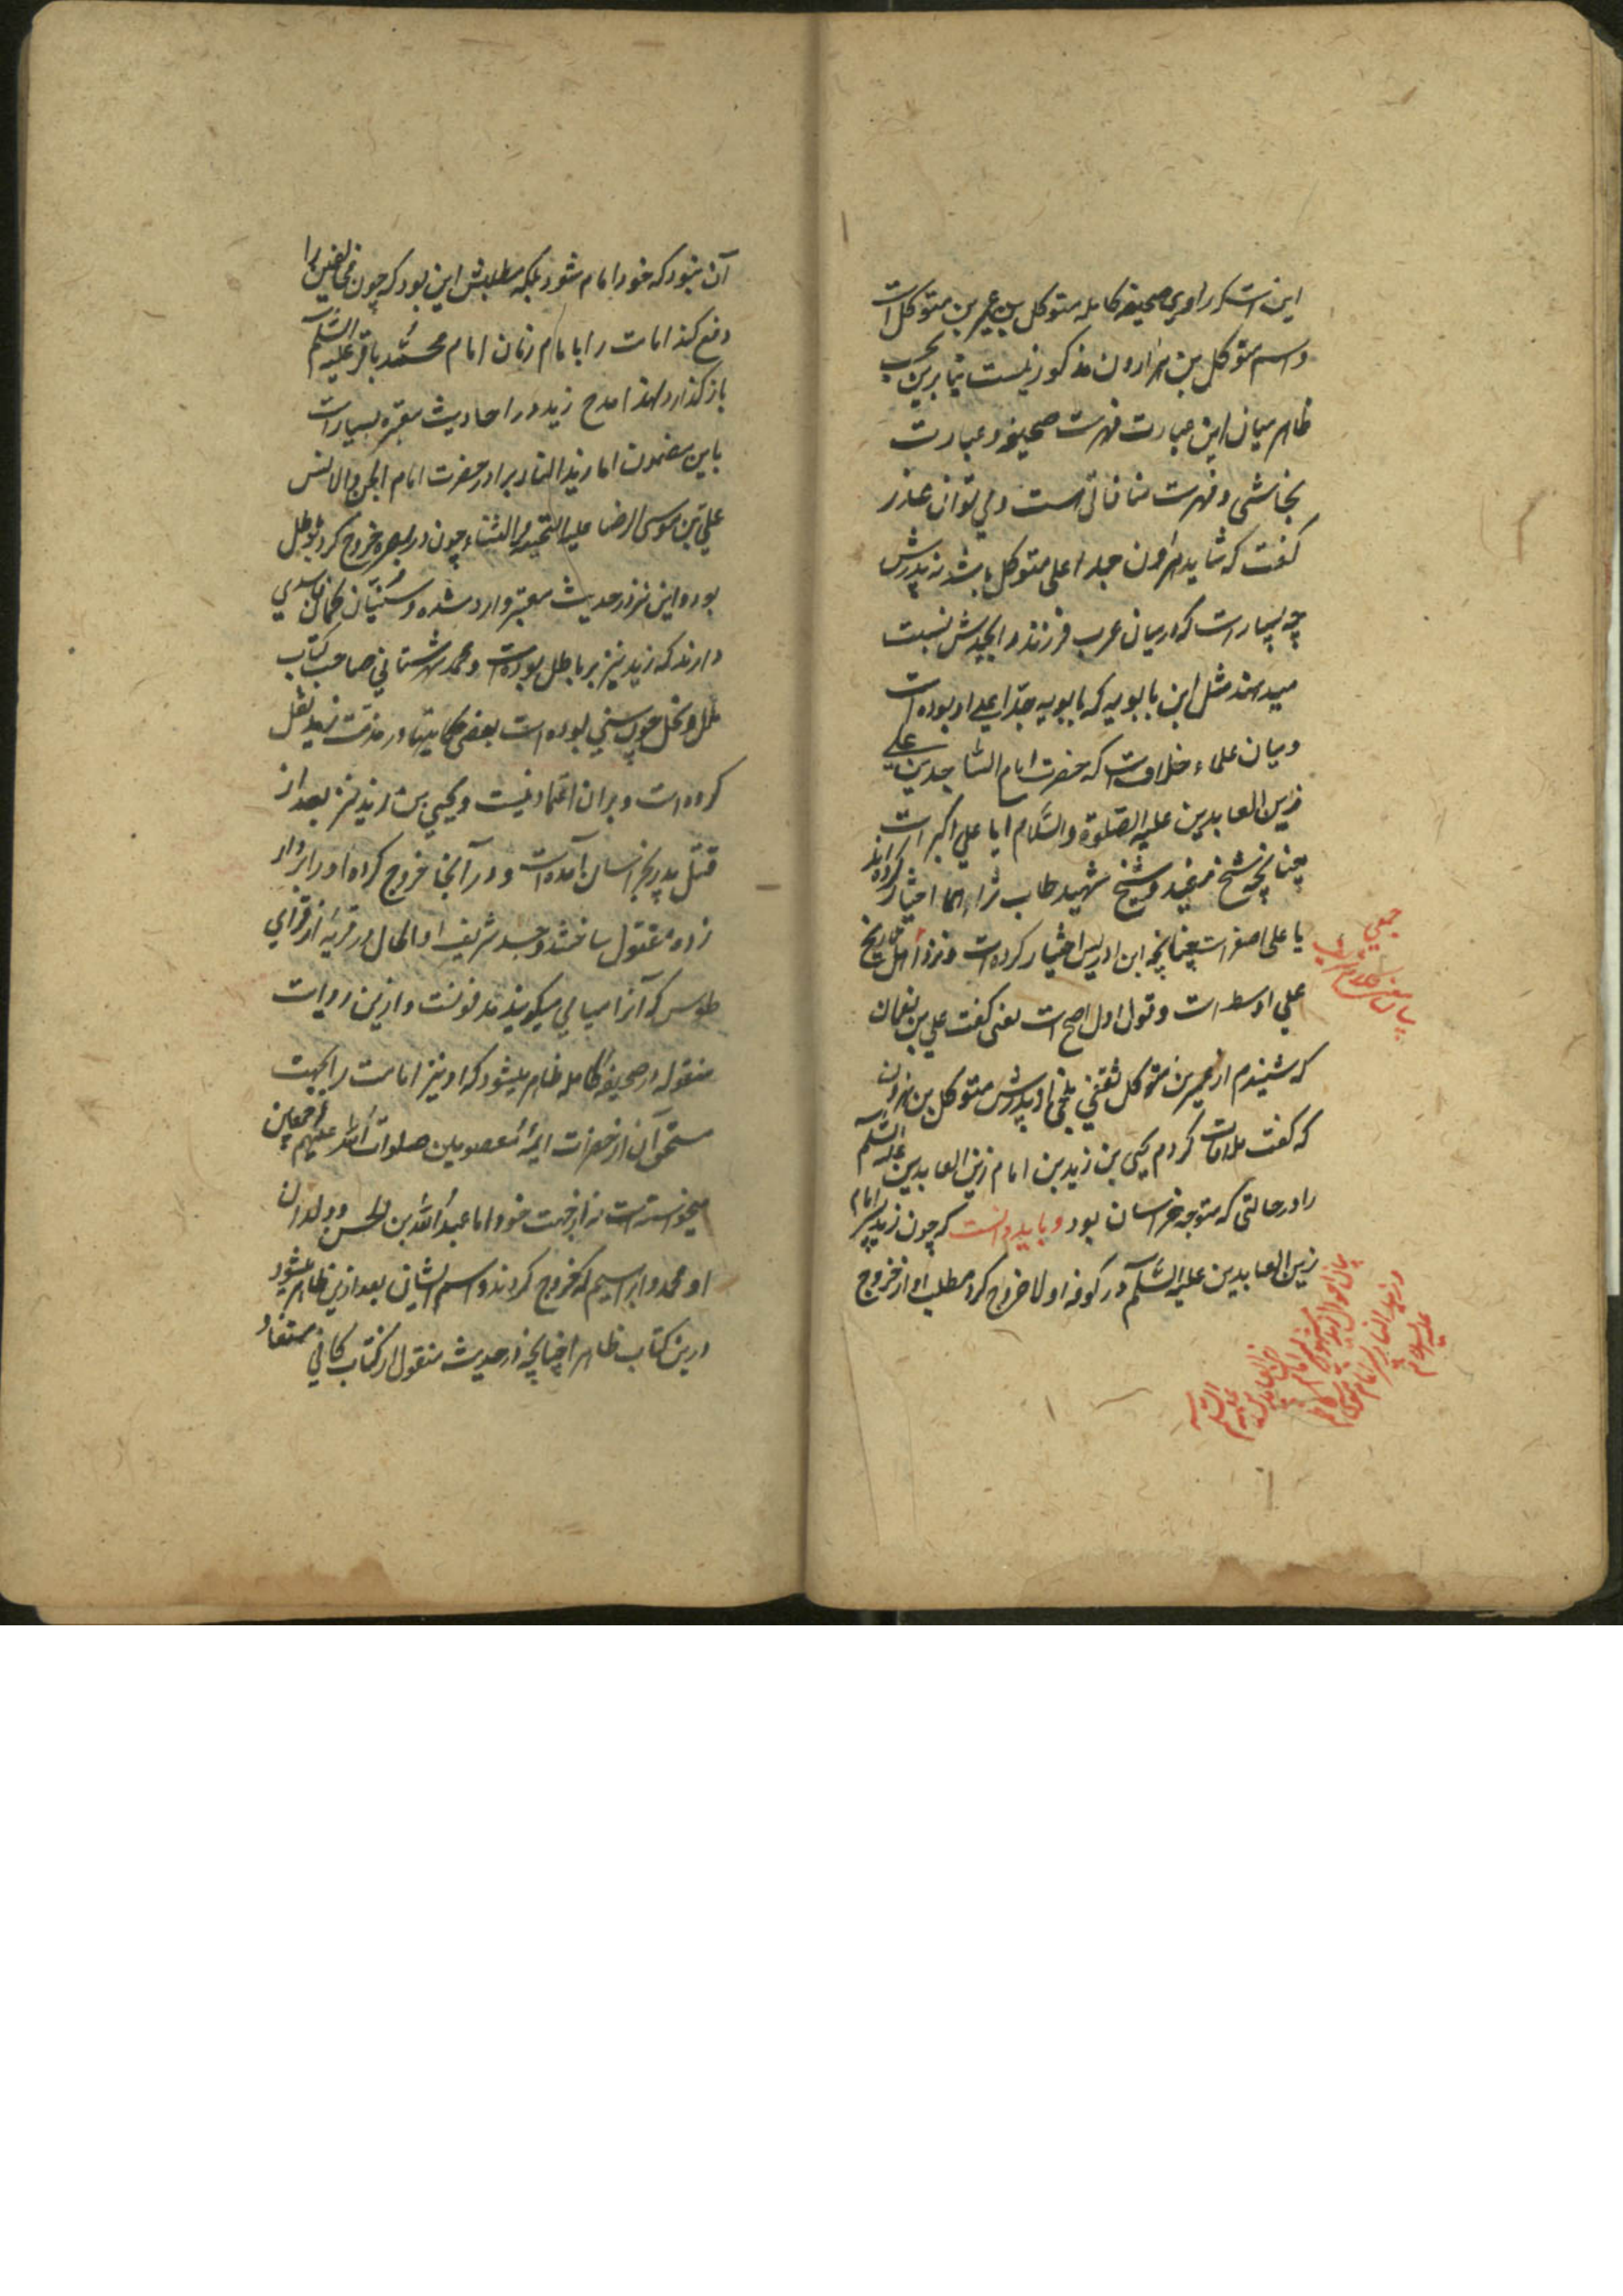 اینست که راوی صحیفه کامله متوکل بن عمیر بن متوکل است
و اسم متوکل بن هارون مذکور نیست بنابرین بحسب
ظاهر میان این عبارت فهرست صحیفه و عبارت
نجاشی و فهرست منافاتی است و می توان عذر
گفت که شاید هرون جد اعلی متوکل باشد نه پدرش
چه بسیار است که در میان عرب فرزند را بجدش نسبت
میدهند مثل ابن بابویه که بابویه جد اعلی او بوده است
و میان علماء خلاف است که حضرت امام الساجدین علی
زین العابدین علیه الصلوة والسلام ایا علی اکبر است
چنانچه شیخ مفید و شیخ شهید طاب ثراهما اختیار کرده اند
یا علی اصغر است چنانچه ابن ادریس اختیار کرده است و نزد اهل تاریخ
علی اوسط است و قول اول اصح است یعنی گفت علی بن نعمان
که شنیدم از عمیر بن متوکل ثقفی بلخی از پدرش متوکل بن هرون
که گفت ملاقات کردم یحیی بن زید بن امام زین العابدین علیه السلم
را در حالتی که متوجه خراسان بود و باید دانست که چون زید پسر امام
زین العابدین علیه السلم در کوفه اولا خروج کرد مطلب او از خروج
جمعی
بیان احوال
زین العابدین علیه السلم
و زید النار پسر امام موسی
علیه السلام
آن نبود که خود امام شود بلکه مطلبش این بود که چون مخالفین را
دفع کند امامت را بامام زمان امام محمد باقر علیه السلم
باز گذارد لهذا مدح زید در احادیث معتبره بسیار است
باین مضمون اما زید النار برادر حضرت امام الجن والانس
علی بن موسی الرضا علیه التحیة والثناء چون در بصره خروج کرد بر باطل
بود و این نیز در حدیث معتبر وارد شده و سنیان گمان فاسدی
دارند که زید نیز بر باطل بوده است و محمد شهرستانی صاحب کتاب
ملل و نحل چون سنی بوده است بعضی حکایتها در مذمت زید نقل
کرده است و بر ان اعتماد نیست و یحیی بن زید نیز بعد از
قتل پدر بخراسان آمده است و در آنجا خروج کرده او را بر دار
زده مقتول ساختند و جسد شریف او الحال در قریه از قرای
طوس که آنرا میامی میگویند مدفونست و ازین روایت
منقوله در صحیفه کامله ظاهر میشود که او نیز امامت را بجهت
مستحق آن از حضرات ائمه معصومین صلوات الله علیهم اجمعین
میخواسته است نه از جهت خود اما عبد الله بن الحسن و ولدان
او محمد و ابراهیم که خروج کردند و اسم ایشان بعد ازین ظاهر میشود
درین کتاب ظاهرا چنانچه از حدیث منقول از کتاب کافی مستفاد